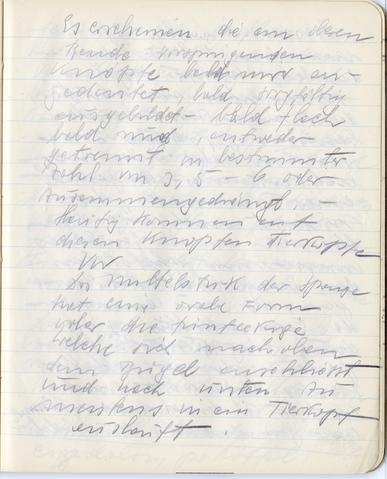 Es erscheinen die am oberen
Rande vorspringenden
Knöpfe bald nur an-
gedeutet bald sorgfältig
ausgebildet – bald flach
bald rund, entweder
getrennt in bestimmter
Zahl von 3, 5 – 6 oder
zusammengedrängt –
Häufig kommen auf
diesen Knöpfen Tierköpfe
vor
Das Mittelstück der Spange
hat eine ovale Form
oder die fünfeckige
welche sich nach oben
dem Bügel anschliesst
und nach unten zu
meistens in ein Tierkopf
ausläuft.